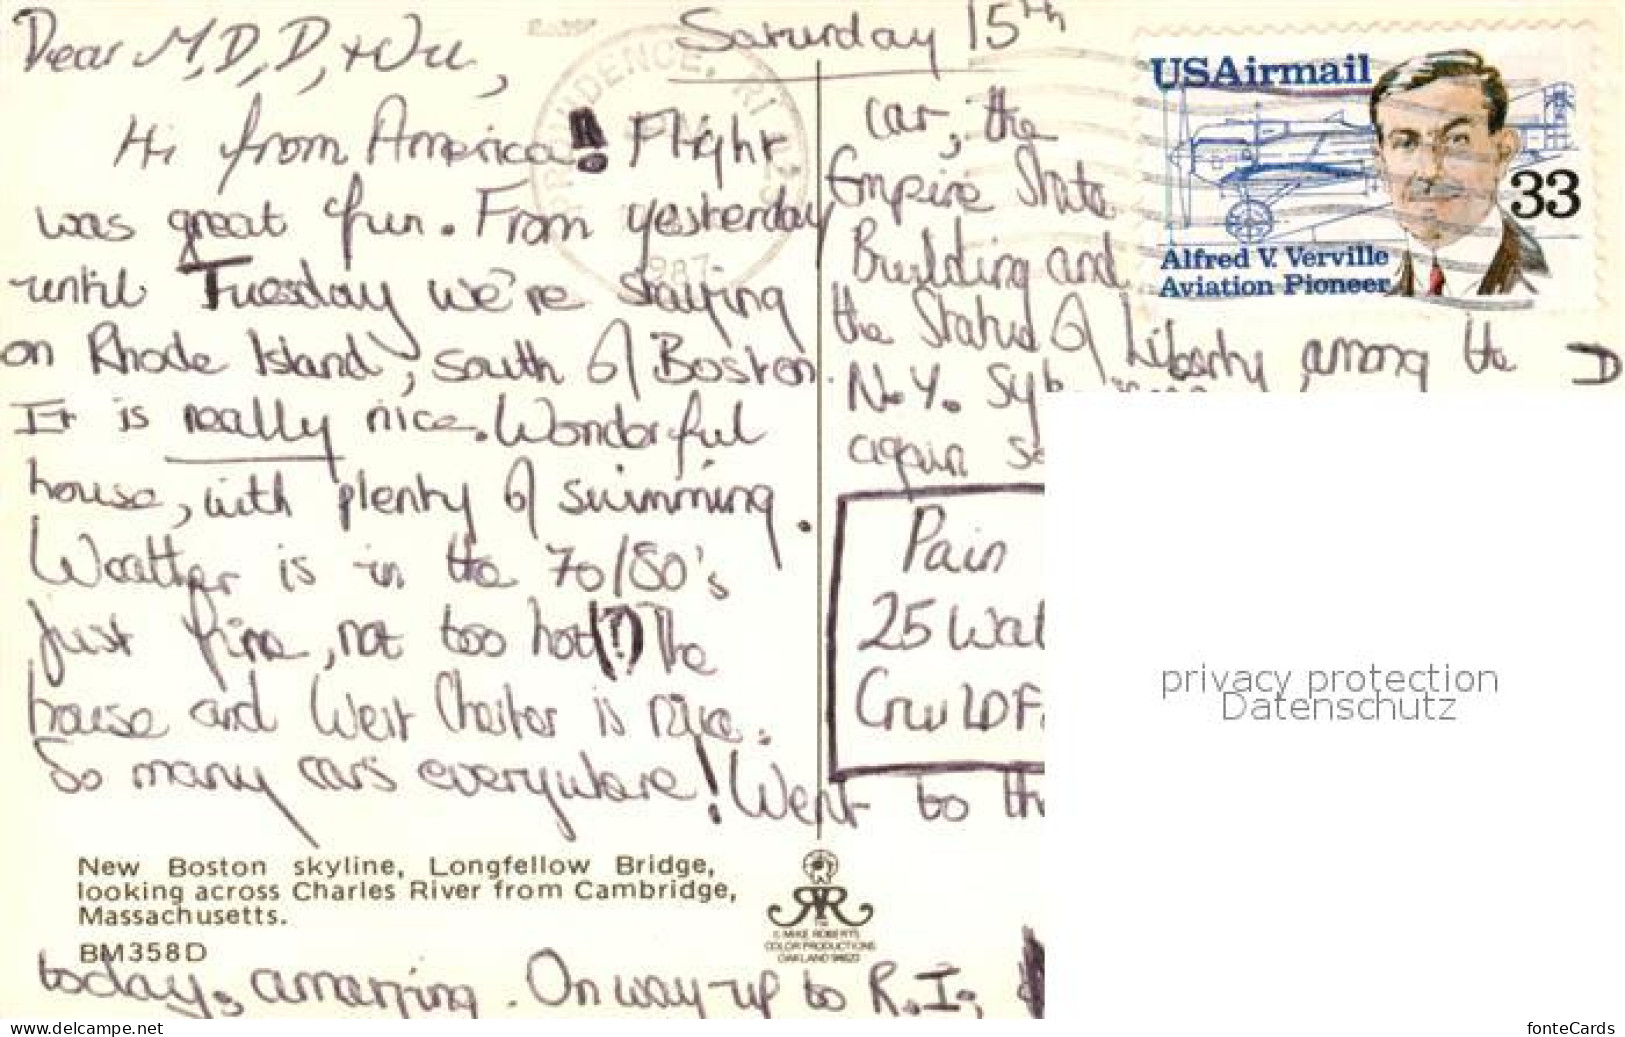 Saturday 15th
Dear M, D, D, + Wu,
Hi from America! Flight
was great fun. From yesterday
until Tuesday we're staying
on Rhode Island, south of Boston.
It is really nice. Wonderful
house, with plenty of swimming.
Weather is in the 70/80's
just fine, not too hot(!) The
house and West Chester is nice.
So many cars everywhere! Went to th
today, amazing. On way up to R.I,
car, the
Empire State
Building and
the Statue of Liberty among the
N.Y.
again
Pain
25 Wat
PROVIDENCE, RI
1987
USAirmail
33
Alfred V. Verville
Aviation Pioneer
New Boston skyline, Longfellow Bridge,
looking across Charles River from Cambridge,
Massachusetts.
BM358D
© MIKE ROBERTS
COLOR PRODUCTIONS
OAKLAND 94623
privacy protection
Datenschutz
www.delcampe.net
fonteCards